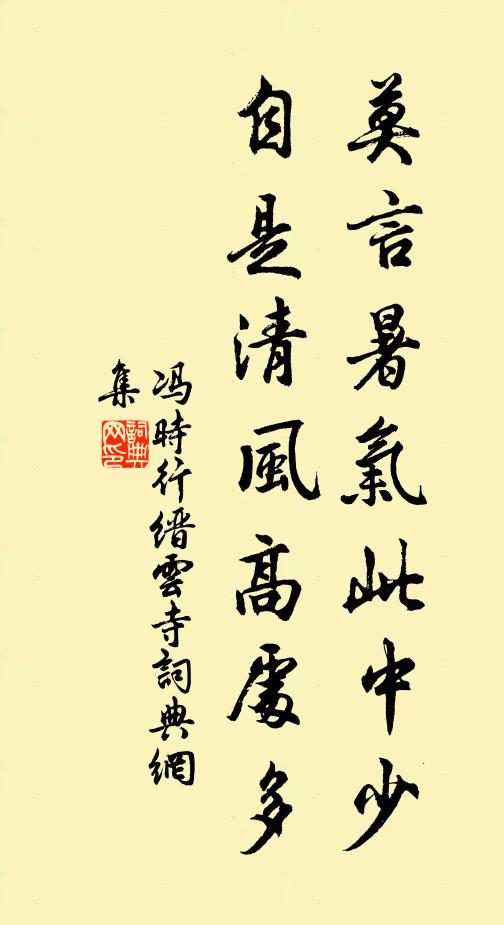 莫言暑氣此中少
自是清風高處多
冯時行缙雲寺詞典網
集
詞典
网印